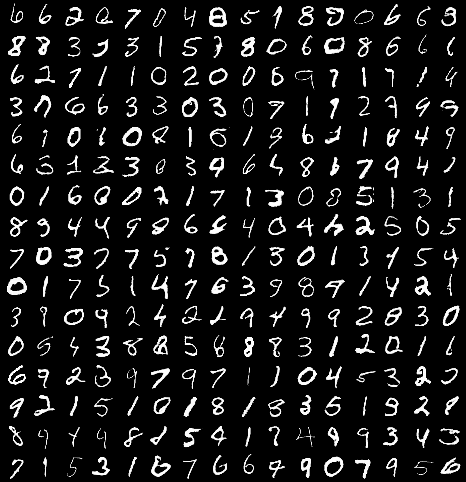 6 6 2 0 7 0 4 8 5 1 8 9 0 6 6 3
8 8 3 3 3 1 5 7 8 0 6 0 8 6 6 6
6 2 7 1 1 0 2 0 0 8 9 7 1 7 1 4
3 7 6 6 3 3 0 3 0 7 1 9 2 7 9 9
6 9 0 1 0 8 1 0 1 9 6 2 1 8 4 9
6 5 1 2 3 0 3 9 6 4 8 1 7 9 4 2
0 1 6 0 0 2 1 7 1 3 0 8 5 1 3 1
8 9 4 4 9 8 6 6 4 0 4 4 2 5 0 5
7 0 3 7 7 5 7 8 1 3 0 1 3 9 5 4
0 1 7 5 1 4 7 6 3 9 8 9 1 4 2 1
3 9 0 9 2 4 2 2 9 4 9 9 2 8 3 0
0 5 4 3 8 8 5 8 8 8 3 1 2 0 1 6
6 9 2 3 9 7 9 7 1 1 0 4 5 3 2 2
9 2 1 5 1 0 1 8 1 8 3 5 1 9 2 8
8 9 4 9 8 8 5 4 1 7 4 9 9 3 4 3
7 1 5 3 1 8 7 6 6 9 9 0 7 9 5 6